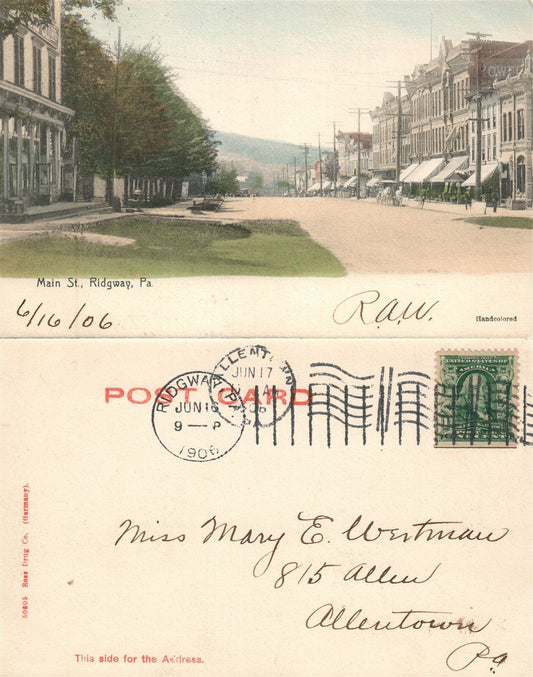 Main St., Ridgway, Pa.
6/16/06
R.A.W.
Handcolored
POST CARD
RIDGWAY PA.
JUN 16
9 — P
1906
ALLENTOWN
JUN 17
Miss Mary E. Westman
815 Allen
Allentown
Pa
50605 Ross Drug Co. (Germany).
This side for the Address.